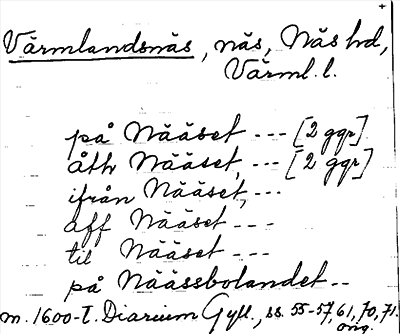 Värmlandsnäs, näs, Näs hd,
Värml. l.
på Nääset --- [2 ggr]
åth Nääset, --- [2 ggr]
ifrån Nääset, ---
aff Nääset ---
til Nääset ---
på Näässbolandet --
m. 1600-t. Diarium Gyll., ss. 55-57, 61, 70, 71.
orig.